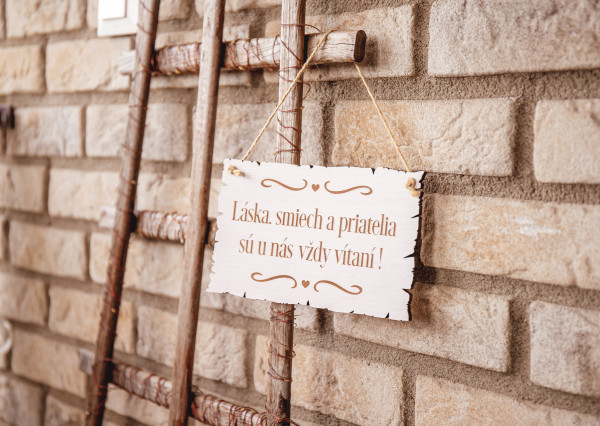 Láska, smiech a priatelia
sú u nás vždy vítaní !